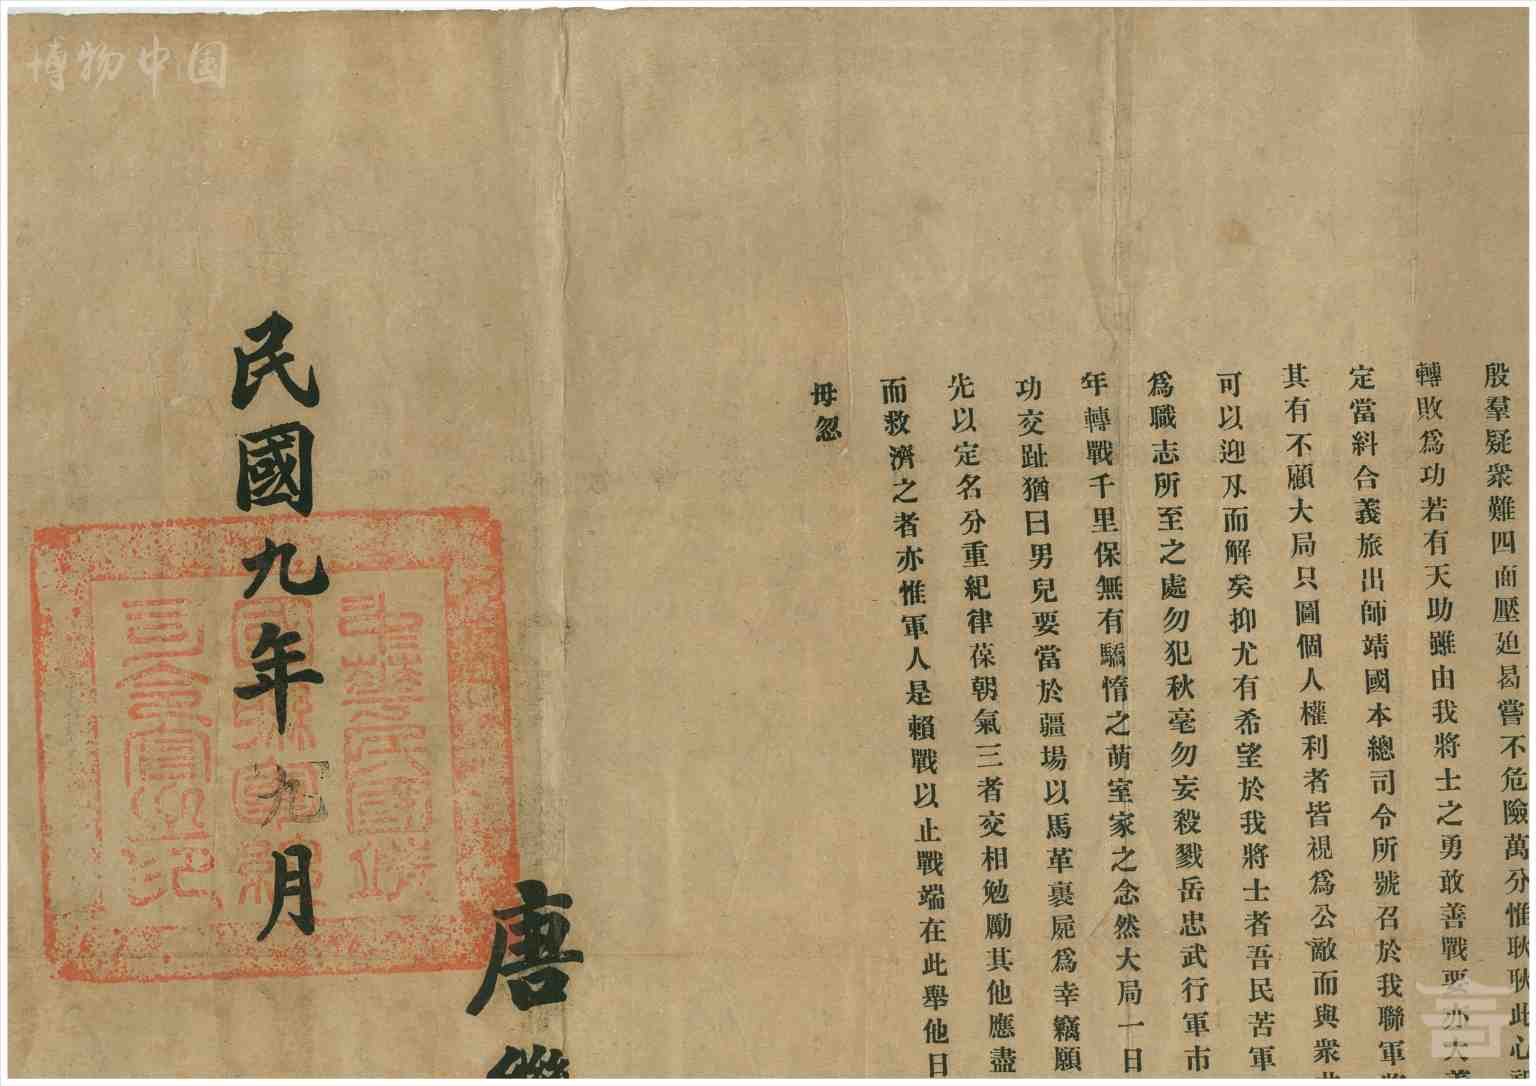 殷羣疑衆難四面壓廹曷嘗不危險萬分惟耿耿此心
轉敗爲功若有天助雖由我將士之勇敢善戰要亦大義
定當糾合義旅出師靖國本總司令所號召於我聯軍將
其有不顧大局只圖個人權利者皆視爲公敵而與衆共
可以迎刄而解矣抑尤有希望於我將士者吾民苦軍
爲職志所至之處勿犯秋毫勿妄殺戮岳忠武行軍市
年轉戰千里保無有驕惰之萌室家之念然大局一日
功交趾猶曰男兒要當於疆場以馬革裹屍爲幸竊願
先以定名分重紀律葆朝氣三者交相勉勵其他應盡
而救濟之者亦惟軍人是賴戰以止戰端在此舉他日
毋忽
唐繼
民國九年九月
中華民國滇
國聯軍總
司令官之印
博物中国